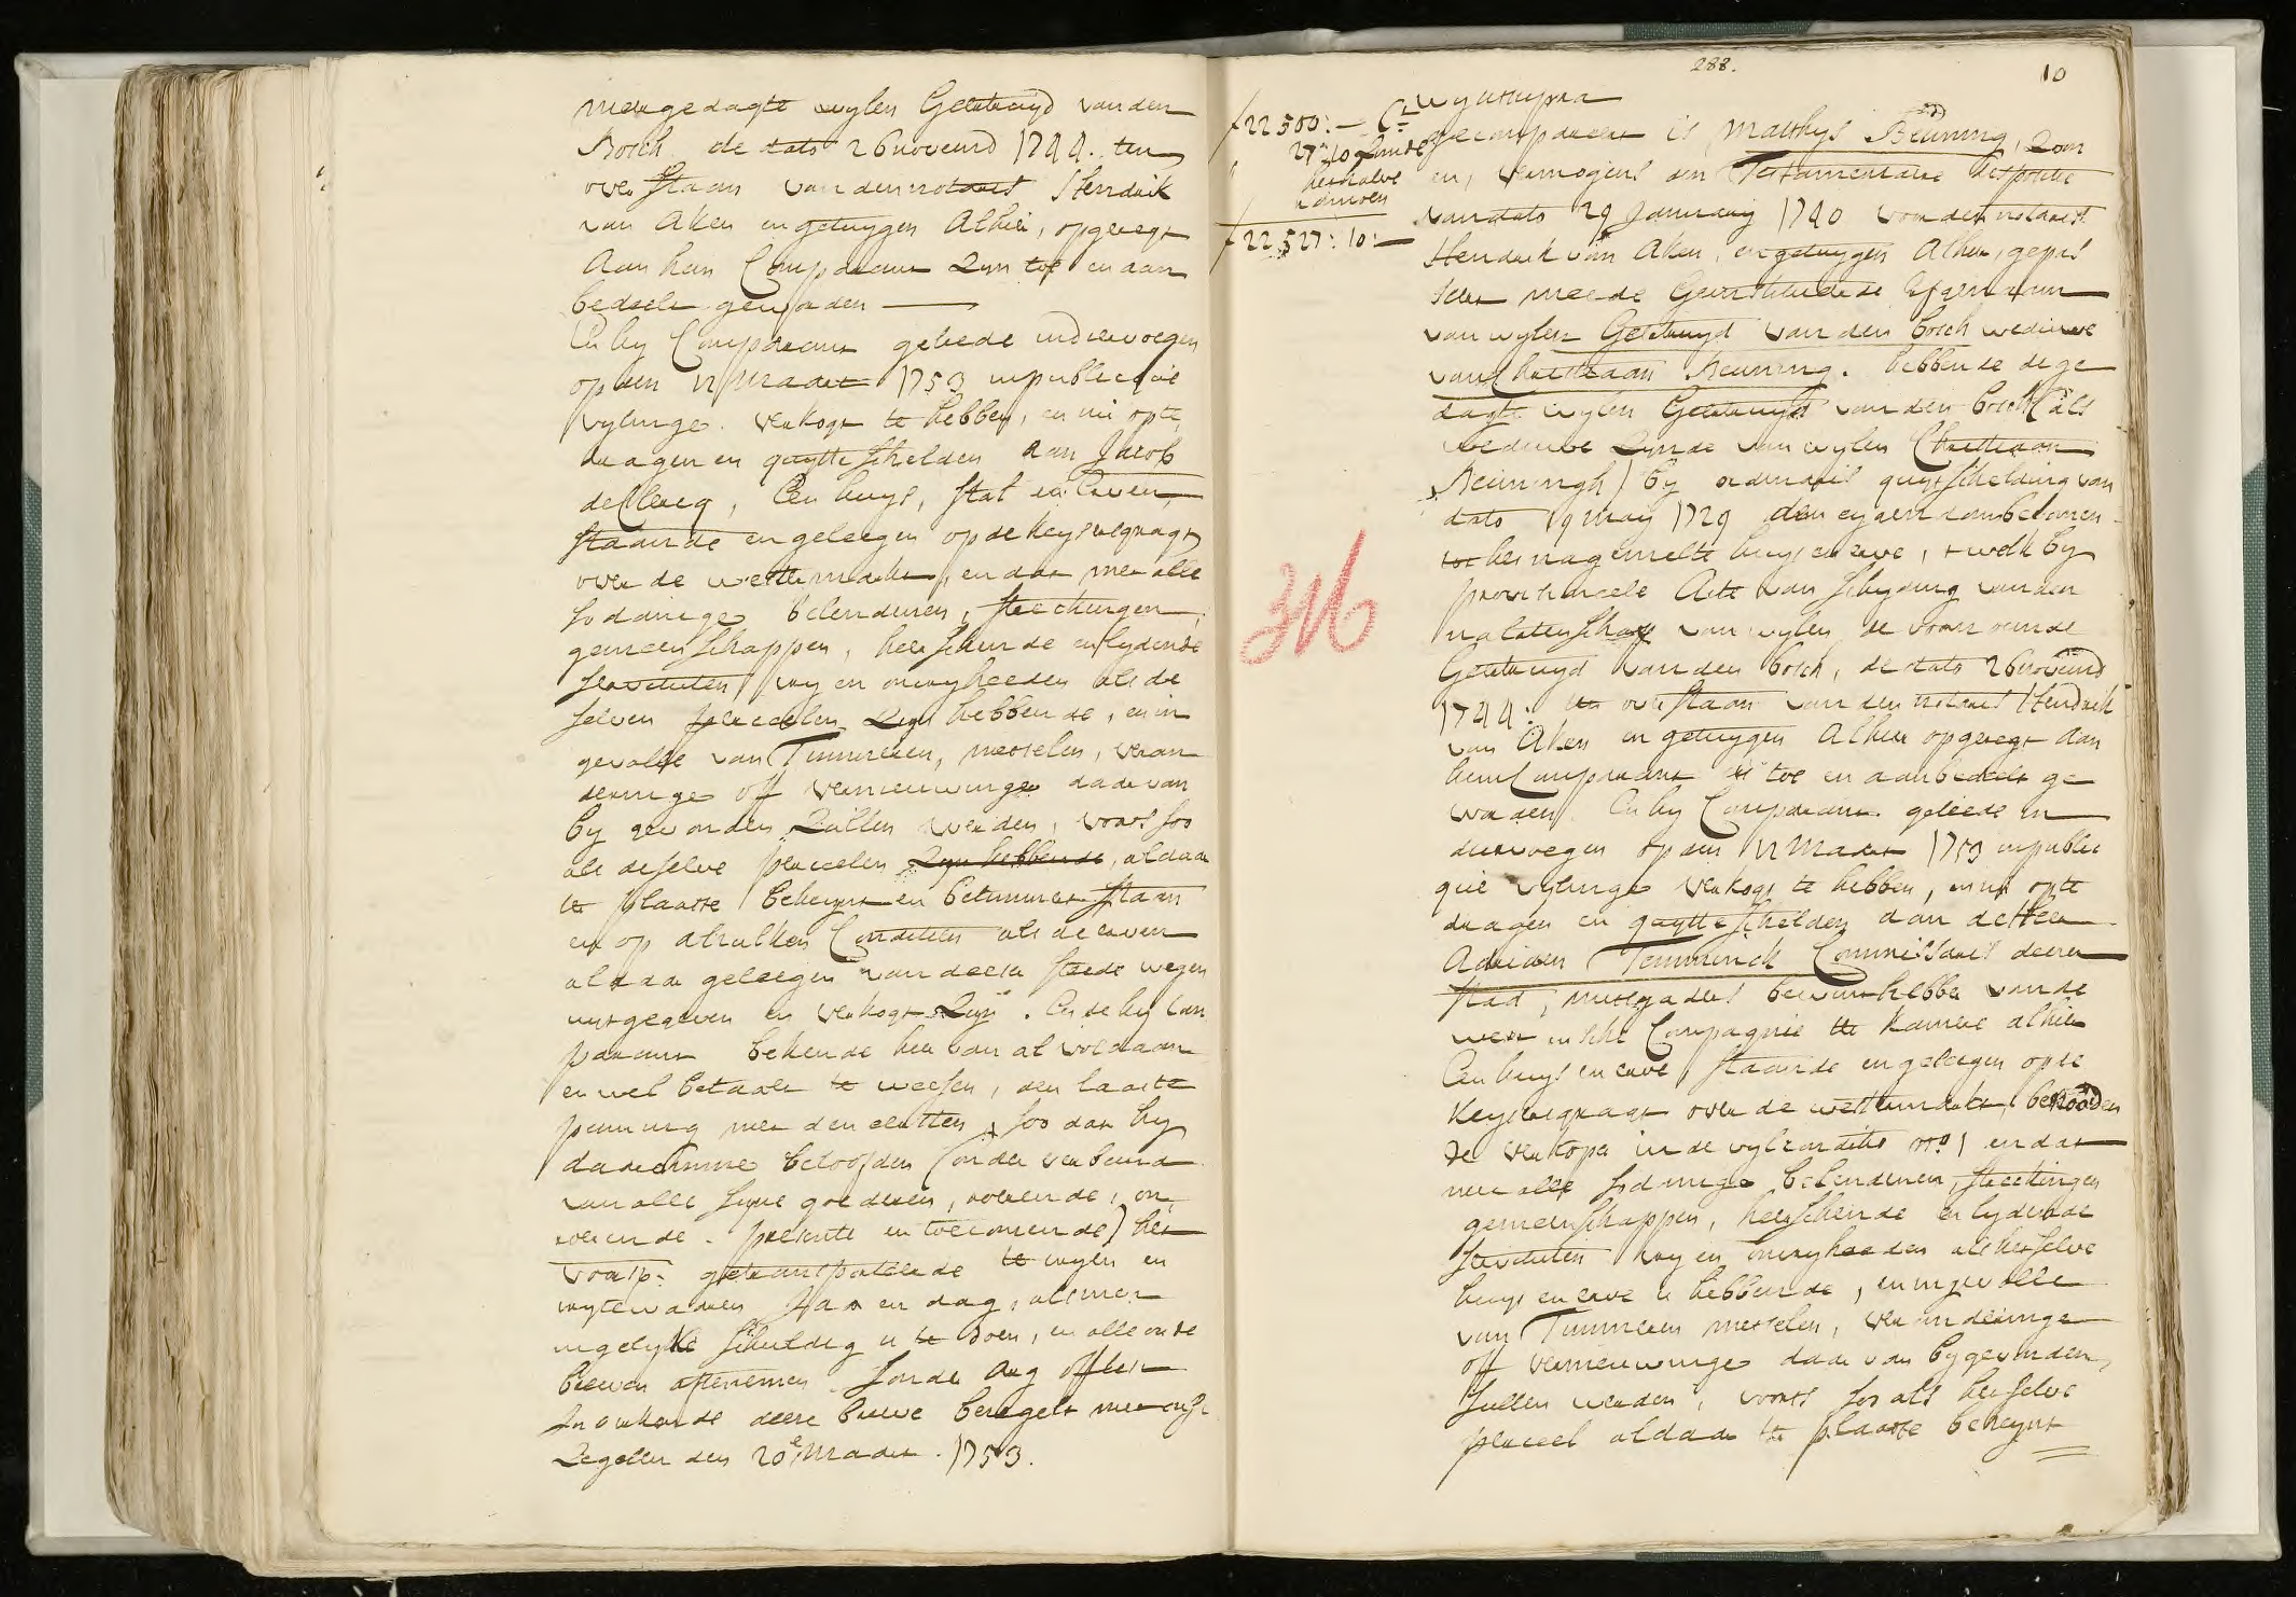 meergedagte wylen Geertruyd van den
Bosch de dato 26 novemb 1744. ten
overstaan van den notaris Hendrik
van Aken en getuygen Alhier, opgeregt
Aan hem Comparant Zyn toe en aan
bedeelt geworden
En hy Comparant geliede indiervoegen
op den 12 Maart 1753 in publicque
vylinge verkogt te hebben, en nu op te
dragen en quytte schelden aan Jacob
de Clercq, Een huys, stal en Erven,
staande en geleegen op de Keysersgragt
over de westermarkt, en dat met alle
sodanige belendenen, streckingen,
gemeenschappen, heerschende en lydende
servituten vry en onvryheeden als de
selven perceelen Zyn hebbende, en in
gevalle van Timmeren, metselen, veran
deringe off vernieuwinge daar van
by gevonden Zullen werden, voorts soo
als deselve perceelen Zyn hebbende, aldaar
ter plaatse beheynt en betimmert staan
en op alsulken Conditien als de erven
aldaar geleegen van deeser steede wegen
uytgegeven en verkogt Zyn. Ende hy Com
parant bekende hier van al voldaan
en wel betaalt te weesen, den laaste
penning met den eersten, soo dat hy
daaromme beloofden (onder verband
van alle syne goederen, roerende, on
roerende. presente en toecomende) het
voorsz: getransporteerde te vryen en
vrytewaren Jaar en dag, als men
ingelyke schuldig is te doen, en alle oude
brieven aftenemen. Sonder Arg offlist
In oirkonde deese brieve beregelt met onse
Zegelen den 20e Maart. 1753.
288.
10
ƒ22500:— Ct
27:10
ƒ22527:10:—
Wy uts supra
gecompareert is Matthys Beuning, Zoon
en, vermogens den Testamentaire dispositie
van dato 29 January 1740 voor den notaris
Hendrik van Aken, en getuygen Alhier, gepas
seert meede Geinstitueerde Erfgenaam
van wylen Geertruyd van den bosch weduwe
van Christiaan Beuning. hebbende de ge
dagte wylen Geertruyd van den bosch (als
weduwe Zynde van wylen Christiaan
Beuningh) by ordinaris quytschelding van
dato 19 May 1729 den eygendom becomen
tot het nagemelte huys en erve, 't welk by
provisioneele Acte van scheyding van den
nalatenschap van wylen de voornoemde
Geertruyd van den bosch, de dato 26 novemb
1744: ten overstaan van den notaris Hendrik
van Aken en getuygen Alhier opgeregt Aan
hem Comparant is toe en aanbedeelt ge
worden. En hy Comparant geliede in
diervoegen op den 12 Maart 1753 in public
que vylinge verkogt te hebben, en nu opte
dragen en quytte schelden aan de Heer
Adriaan Temminck Commissaris deeser
stad, mitsgaders bewinthebber van de
west indische Compagnie ter Kamere alhier
Een huys en erve staande en geleegen op de
Keysersgragt over de westermarkt,
de verkoper in de vylconditie No: 1 en dat
met alle sodanige belendenen, streckingen
gemeenschappen, heerschende en lydende
servituten vry en onvryheeden als hetselve
huys en erve is hebbende, en ingevalle
van Timmeren metselen, veranderinge
off vernieuwinge daar van bygevonden
sullen werden, voorts soo als hetselve
perceel aldaar ter plaatse beheynt
316